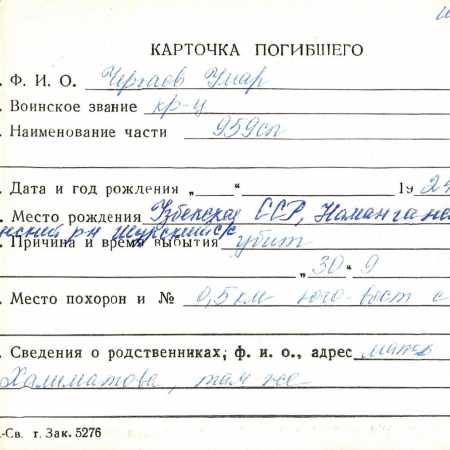 КАРТОЧКА ПОГИБШЕГО
. Ф. И. О. Чергаев Умар
. Воинское звание кр-ц
. Наименование части 959сп
. Дата и год рождения „ “ 19 24
. Место рождения Узбекская ССР, Наманганс
нский р-н с/с
. Причина и время выбытия убит
„ 30 “ 9
. Место похорон и № 0,5 км юго-вост с
. Сведения о родственниках, ф. и. о., адрес мать
Халиматова, там же
.-Св. т. Зак. 5276